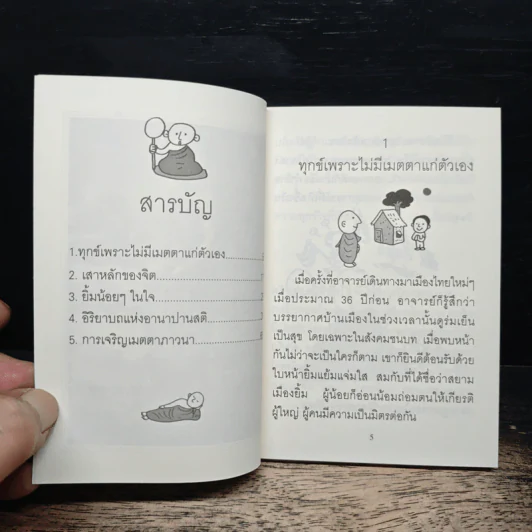 สารบัญ
1.ทุกข์เพราะไม่มีเมตตาแก่ตัวเอง
2. เสาหลักของจิต
3. ยิ้มน้อยๆ ในใจ
4. อิริยาบถแห่งอานาปานสติ
5. การเจริญเมตตาภาวนา
1
ทุกข์เพราะไม่มีเมตตาแก่ตัวเอง
เมื่อครั้งที่อาจารย์เดินทางมาเมืองไทยใหม่ๆ
เมื่อประมาณ 36 ปีก่อน อาจารย์ก็รู้สึกว่า
บรรยากาศบ้านเมืองในช่วงเวลานั้นดูร่มเย็น
เป็นสุข โดยเฉพาะในสังคมชนบท เมื่อพบหน้า
กันไม่ว่าจะเป็นใครก็ตาม เขาก็ยินดีต้อนรับด้วย
ใบหน้ายิ้มแย้มแจ่มใส สมกับที่ได้ชื่อว่าสยาม
เมืองยิ้ม ผู้น้อยก็อ่อนน้อมถ่อมตนให้เกียรติ
ผู้ใหญ่ ผู้คนมีความเป็นมิตรต่อกัน
5